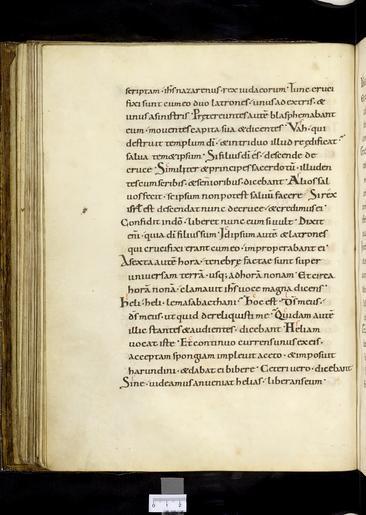 scriptam · ihs nazarenus · rex iudaeorum · Tunc cruci
fixi sunt cum eo duo latrones · unus ad extris · &
unus a sinistris · Praetereuntes autē blasphemabant
eum · mouentes capita sua & dicentes · Vah · qui
destruit templum dī · & in triduo illud reędificat ·
salua temetipsum · Si filius dī es · descende de
cruce · Similiter & principes sacerdotū · illuden
tes cum scribis · & senioribus · dicebant · Alios sal
uos fecit · se ipsum non potest saluū facere · Si rex
isrł est descendat nunc de cruce · & credimus ei ·
Confidit in dnō · liberet nunc eum si uult · Dixit
enī · quia dī filius sum · Id ipsum autē & latrones
qui crucifixi erant cum eo · improperabant ei ·
A sexta autē hora · tenebrę factae sunt super
uniuersam terrā · usq; ad horā nonam · Et circa
horā nonā · clamauit ihs voce magna dicens ·
heli · heli · lema sabacthani · hoc est · Ds meus ·
ds meus · ut quid dereliquisti me · Quidam autē
illic stantes & audientes · dicebant · Heliam
uocat iste · Et continuo currens unus ex eis ·
acceptam spongiam impleuit aceto · & imposuit
harundini · & dabat ei bibere · Ceteri uero · dicebant
Sine · uideamus an ueniat helias · liberans eum ·